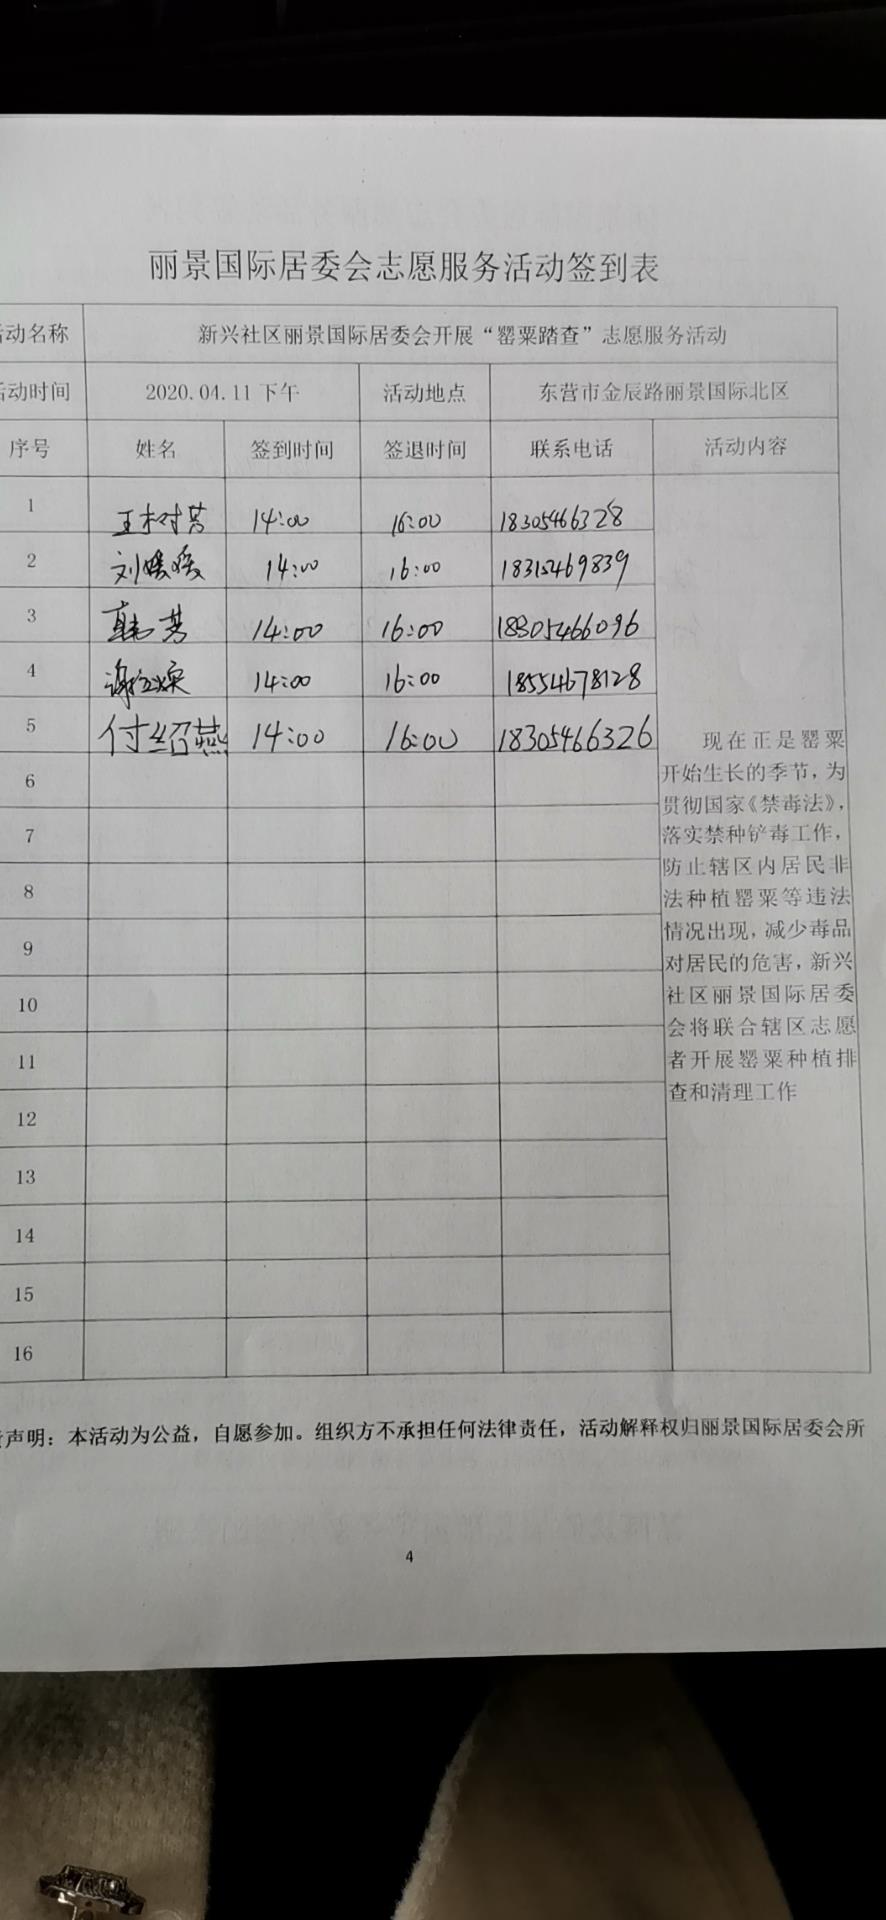 丽景国际居委会志愿服务活动签到表
动名称 新兴社区丽景国际居委会开展“罂粟踏查”志愿服务活动
动时间 2020.04.11下午 活动地点 东营市金辰路丽景国际北区
序号 姓名 签到时间 签退时间 联系电话 活动内容
1 王树芳 14:00 16:00 18305466328
2 刘媛媛 14:00 16:00 18315469839
3 韩芳 14:00 16:00 18305466096
4 14:00 16:00 18554678128
5 付绍燕 14:00 16:00 18305466326
6
7
8
9
10
11
12
13
14
15
16
现在正是罂粟
开始生长的季节，为
贯彻国家《禁毒法》，
落实禁种铲毒工作，
防止辖区内居民非
法种植罂粟等违法
情况出现，减少毒品
对居民的危害，新兴
社区丽景国际居委
会将联合辖区志愿
者开展罂粟种植排
查和清理工作
声明：本活动为公益，自愿参加。组织方不承担任何法律责任，活动解释权归丽景国际居委会所
4